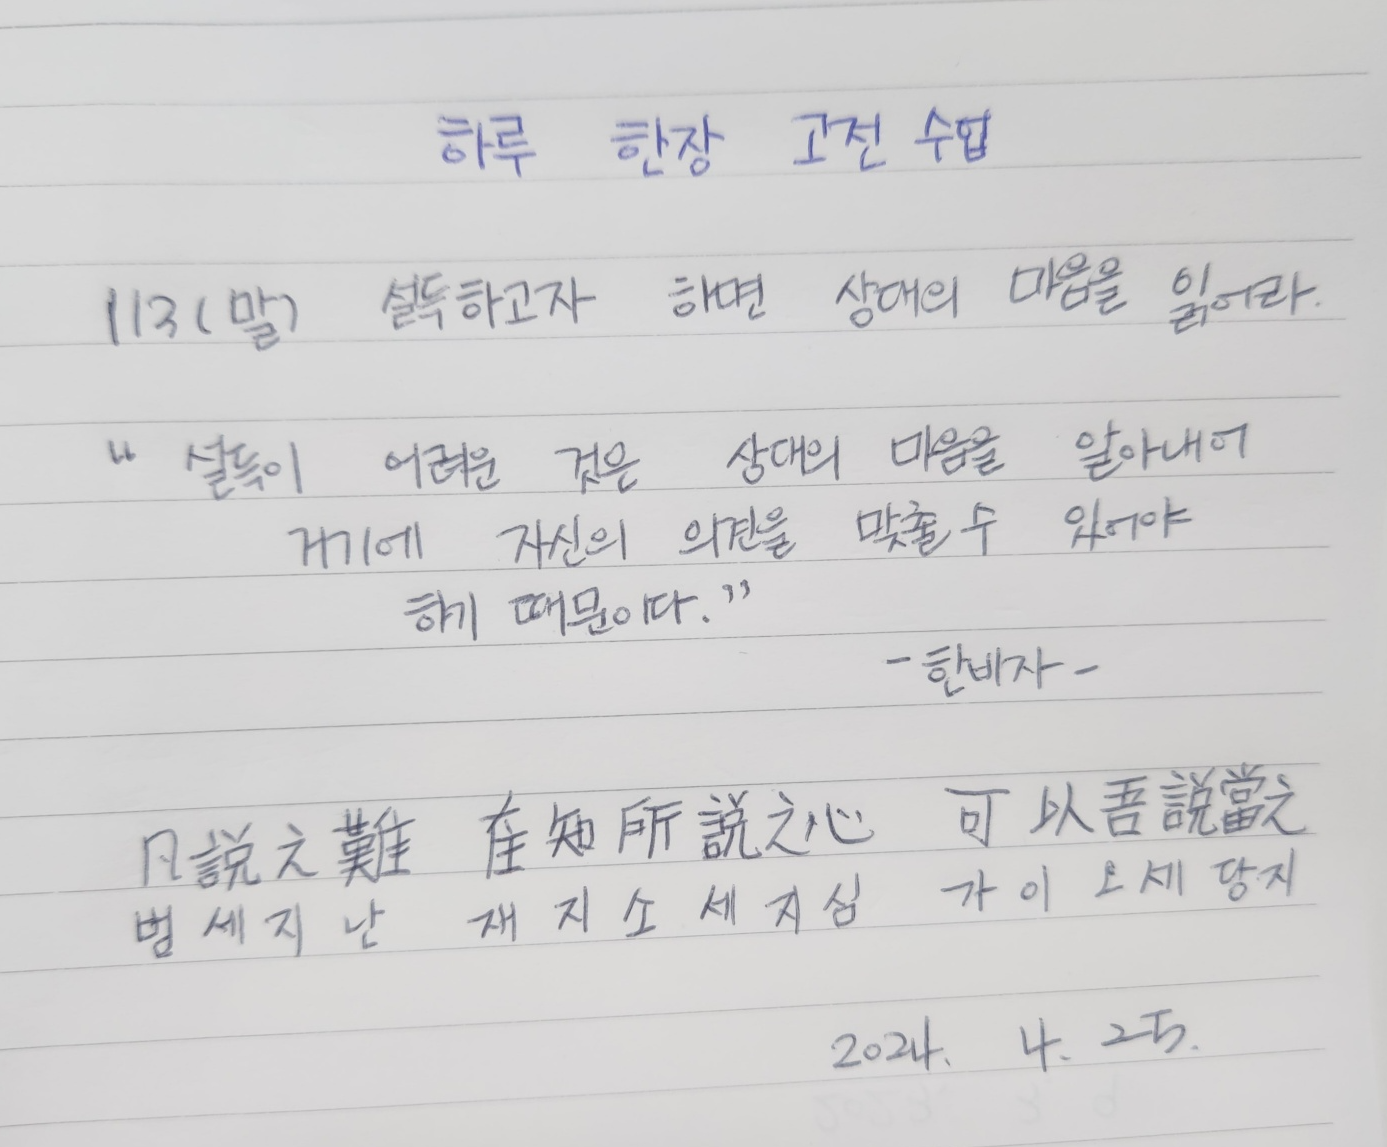 하루 한장 고전 수업
113(말) 설득하고자 하면 상대의 마음을 읽어라.
“설득이 어려운 것은 상대의 마음을 알아내어
거기에 자신의 의견을 맞출 수 있어야
하기 때문이다.”
-한비자-
凡說之難 在知所說之心 可以吾說當之
범세지난 재지소세지심 가이오세당지
2024. 4. 25.